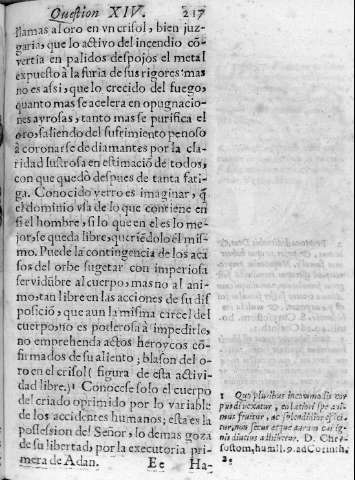 Question XIV. 217
llamas al oro en vn crisol, bien juz-
garia, que lo activo del incendio cō-
vertia en palidos despojos el metal
expuesto à la furia de sus rigores: mas
no es assi, que lo crecido del fuego,
quanto mas se acelera en opugnacio-
nes ayrosas, tanto mas se purifica el
oro, saliendo del sufrimiento penoso
à coronarse de diamantes por la cla-
ridad lustrosa en estimaciō de todos,
con que quedò despues de tanta fati-
ga. Conocido yerro es imaginar, q̃
el dominio vsa de lo que contiene en
si el hombre, si lo que en el es lo me-
jor, se queda libre, queriēdolo èl mis-
mo. Puede la contingencia de los aca
sos del orbe sugetar con imperiosa
servidūbre al cuerpo; mas no al ani-
mo, tan libre en las acciones de su dis
posiciō, que aun la misma circel del
cuerpo, no es poderosa à impedirle,
no emprehenda actos heroycos cō-
firmados de su aliento; blason del o-
ro en el crisol (figura de esta activi-
dad libre.) 1 Conocese solo el cuerpo
del criado oprimido por lo variable
de los accidentes humanos; esta es la
possession del Señor, lo demas goza
de su libertad, por la executoria pri
mera de Adan. Ee Ha-
1 Quo pluribus incommodis cor
pus divexatur, eo latiori spe ani-
mus fruitur, ac splendidior effici-
tur, non secus atque aurum cui ig-
nis diutius adhibetur. D. Chry-
sostom, humil. 9. ad Corinth.
2.